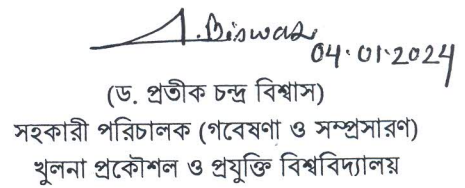 A.Biswas
04.01.2024
(ড. প্রতীক চন্দ্র বিশ্বাস)
সহকারী পরিচালক (গবেষণা ও সম্প্রসারণ)
খুলনা প্রকৌশল ও প্রযুক্তি বিশ্ববিদ্যালয়